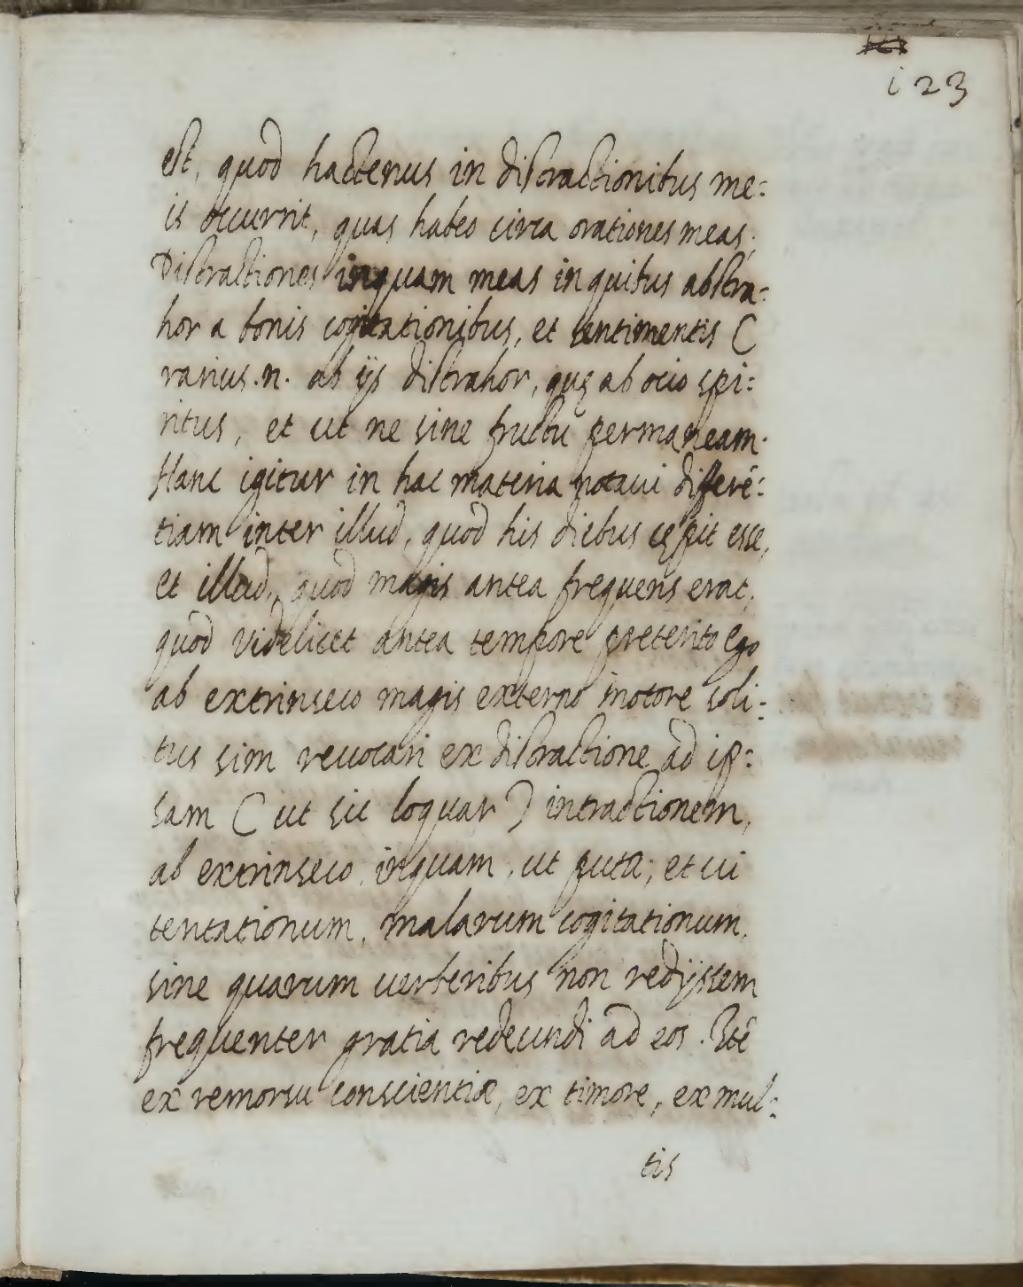 123
est, quod hactenus in distractionibus me:
is occurrit, quas habeo circa orationes meas,
Distractiones inquam meas in quibus abstra:
hor a bonis cogitationibus, et sentimentis (
rarius .n. ab ijs distrahor, quę ab ocio spi:
ritus, et ut ne sine fructu permaneam.
Hanc igitur in hac materia notaui differē:
tiam inter illud, quod his diebus cępit esse,
et illud, quod magis antea frequens erat,
quod videlicet antea tempore preterito ego
ab extrinseco magis externo motore soli:
tus sim reuocari ex distractione ad ip:
sam ( ut sic loquar ) intractionem,
ab extrinseco, inquam, ut puta; et ui
tentationum, malarum cogitationum,
sine quarum uerberibus non redijssem
frequenter gratia redeundi ad eos. Itē
ex remorsu conscientiæ, ex timore, ex mul:
tis